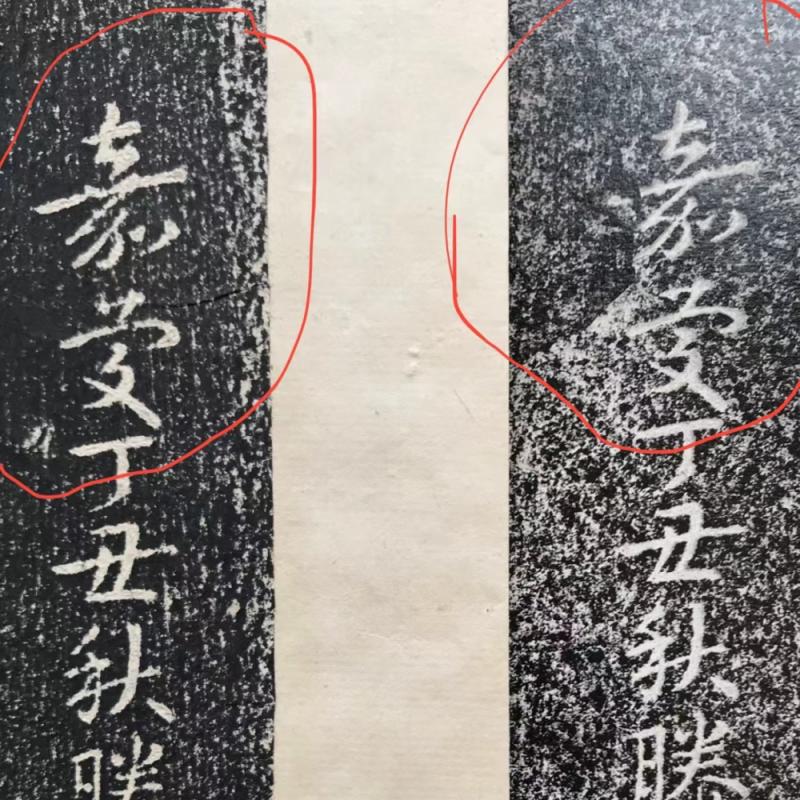 嘉慶丁丑秋
嘉慶丁丑秋